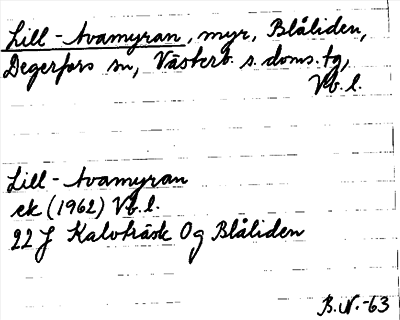 Lill-Avamyran, myr, Blåliden,
Degerfors sn, Västerb. s. doms. tg,
Vb. l.
Lill-Avamyran
ek (1962) Vb. l.
22 J Kalvträsk Og Blåliden
B.N.-63